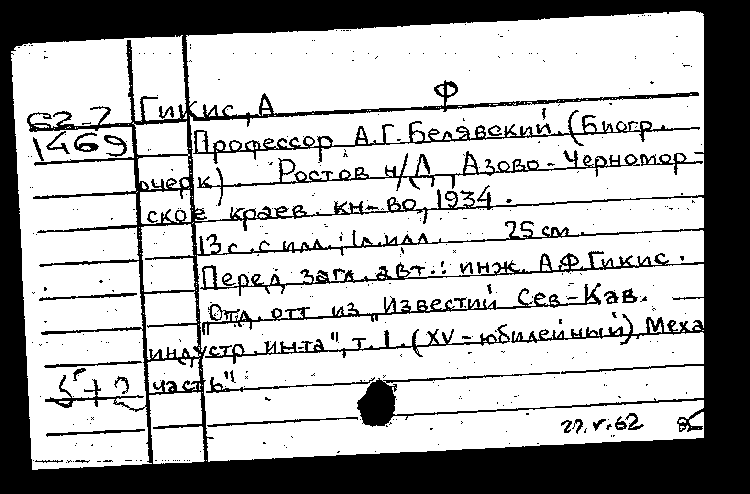 Ф
С2-7 Гикис, А
1469 Профессор А.Г. Белявский. (Биогр.
очерк). Ростов н/Д, Азово-Черномор-
ское краев. кн-во, 1934.
13 с. с илл.; 1 л. илл. 25 см.
Перед загл. авт.: инж. А.Ф. Гикис.
"Отд. отт из "Известий Сев-Кав.
индустр. ин-та", т. 1. (XV-юбилейный), Меха
5+2 часть".
29.V.62